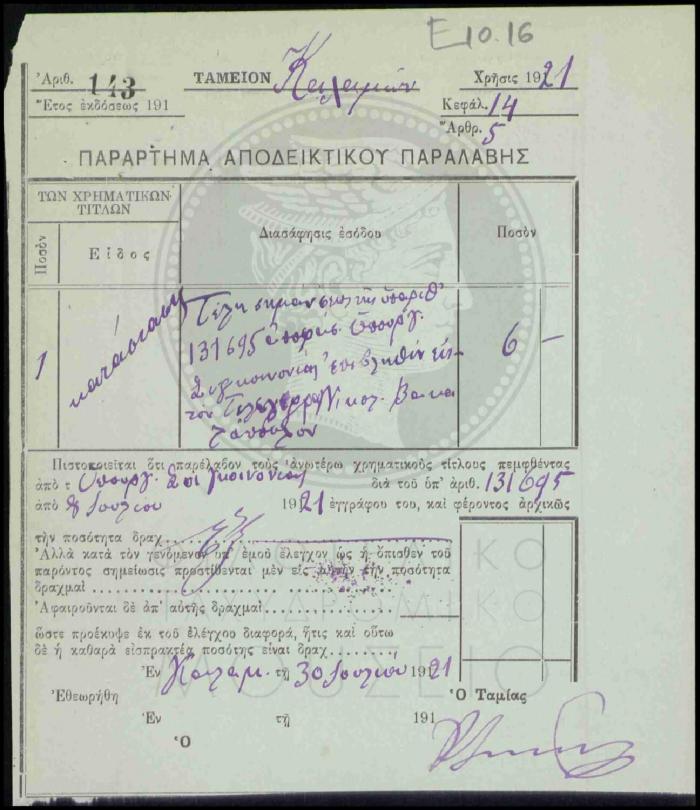 Ε10.16
Ἀριθ. 143 ΤΑΜΕΙΟΝ Καλαμῶν Χρῆσις 1921
Ἔτος ἐκδόσεως 191 Κεφάλ. 14
Ἄρθρ. 5
ΠΑΡΑΡΤΗΜΑ ΑΠΟΔΕΙΚΤΙΚΟΥ ΠΑΡΑΛΑΒΗΣ
ΤΩΝ ΧΡΗΜΑΤΙΚΩΝ ΤΙΤΛΩΝ
Ποσὸν Εἶδος Διασάφησις ἐσόδου Ποσὸν
1 κατάστασις Τέλη σημάνσεως τῆς ὑπαριθ
131695 Ὑπουργ. 6 –
Συγκοινωνίας ἐπιβληθὲν εἰς
τὸν Νικολ.
Πιστοποιεῖται ὅτι παρέλαβον τοὺς ἀνωτέρω χρηματικοὺς τίτλους πεμφθέντας
ἀπὸ τ Ὑπουργ. Συγκοινωνίας διὰ τοῦ ὑπ' ἀριθ. 131695
ἀπὸ 8 Ἰουλίου 1921 ἐγγράφου του, καὶ φέροντος ἀρχικῶς
τὴν ποσότητα δραχ.
Ἀλλὰ κατὰ τὸν γενόμενον ὑπ' ἐμοῦ ἔλεγχον ὡς ἡ ὄπισθεν τοῦ
παρόντος σημείωσις προστίθενται μὲν εἰς αὐτὴν τὴν ποσότητα
δραχμαὶ
Ἀφαιροῦνται δὲ ἀπ' αὐτῆς δραχμαὶ
ὥστε προέκυψε ἐκ τοῦ ἐλέγχου διαφορά, ἥτις καὶ οὕτω
δὲ ἡ καθαρὰ εἰσπρακτέα ποσότης εἶναι δραχ.
Ἐν Καλάμ. τῇ 30 Ἰουλίου 1921
Ἐθεωρήθη Ὁ Ταμίας
Ἐν τῇ 191
Ὁ
ΜΟΥΣΕΙΟ